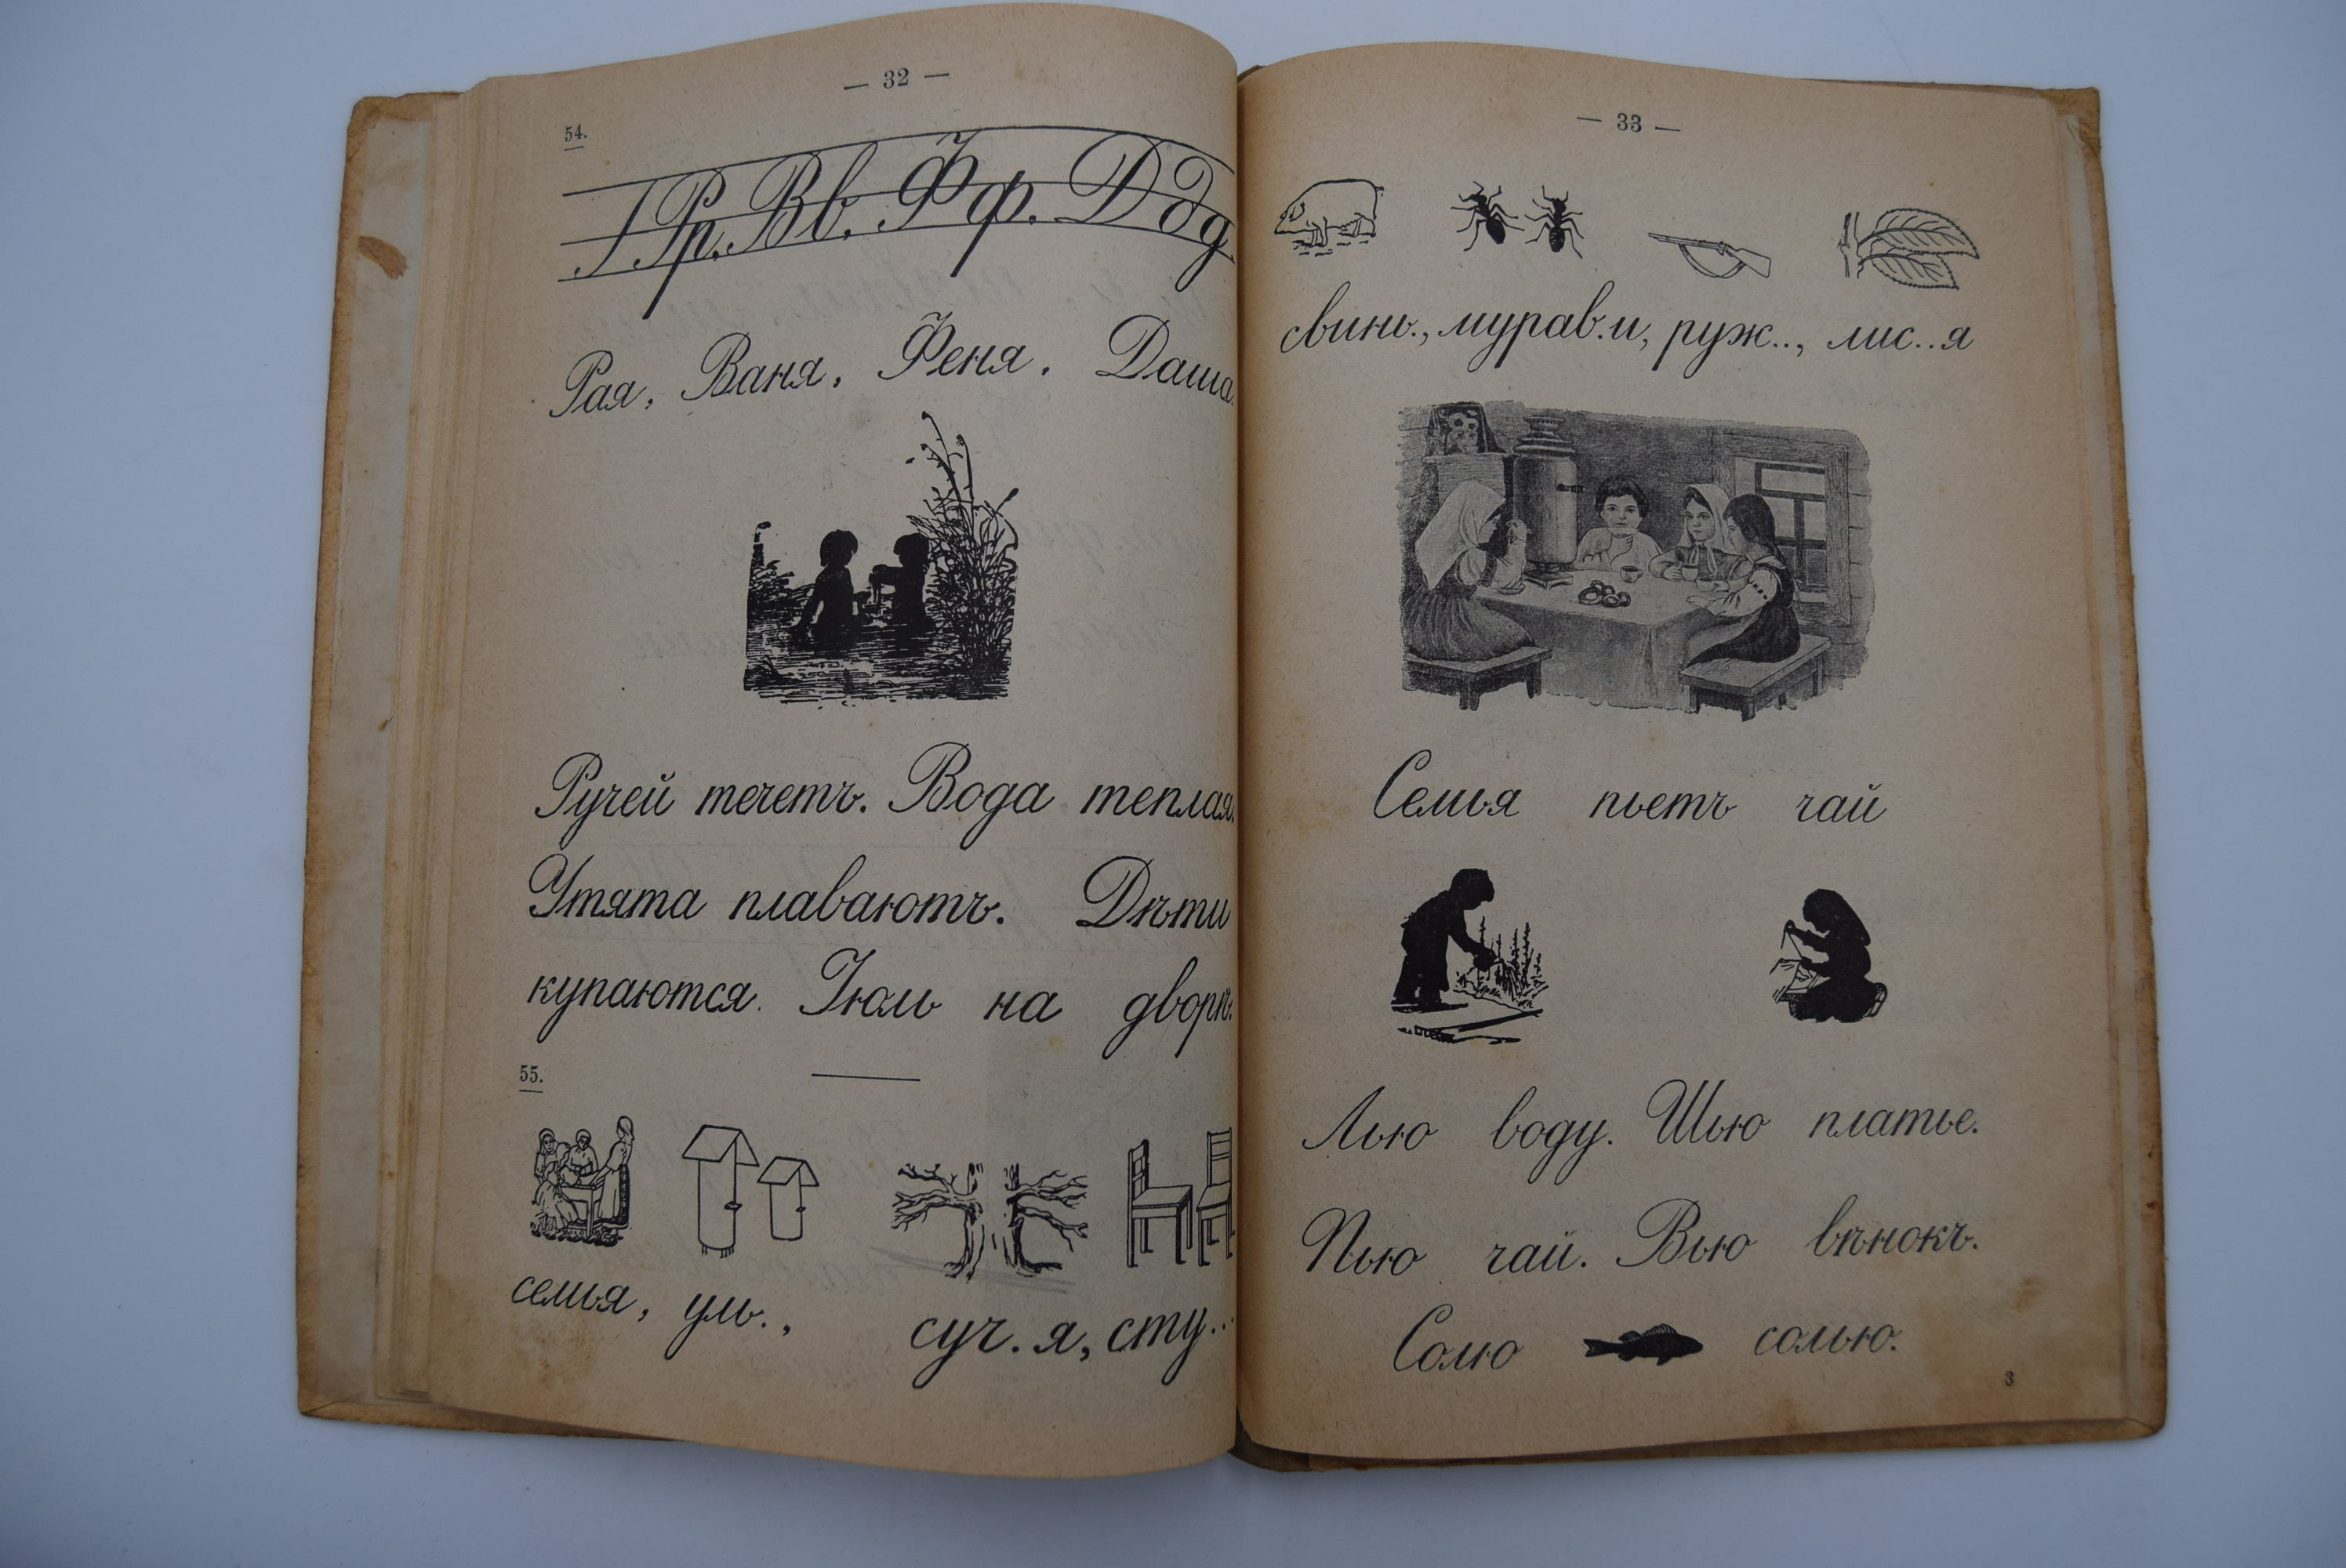 — 32 —
54.
Рр. Вв. Фф. Д д д
Рая, Ваня, Феня. Даша.
Ручей течетъ. Вода теплая.
Утята плаваютъ. Дѣти
купаются. Іюль на дворѣ.
55.
семья, уль., суч.я, сту..
— 33 —
свинь., мурав.и, руж.., лис..я
Семья пьетъ чай
Лью воду. Шью платье.
Пью чай. Вью вѣнокъ.
Солю солью.
3